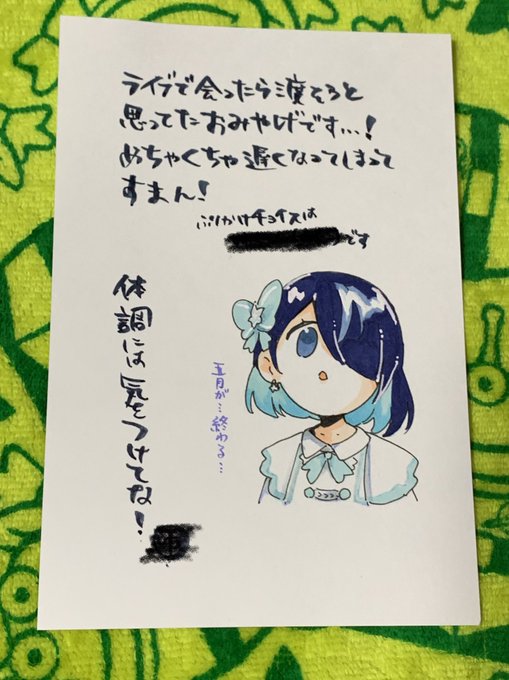 ライブで会ったら渡そうと
思ってたおみやげです…!
めちゃくちゃ遅くなってしまって
すまん!
ふりかけチョイスは
です
五月が…終わる…
体調には気をつけてな!